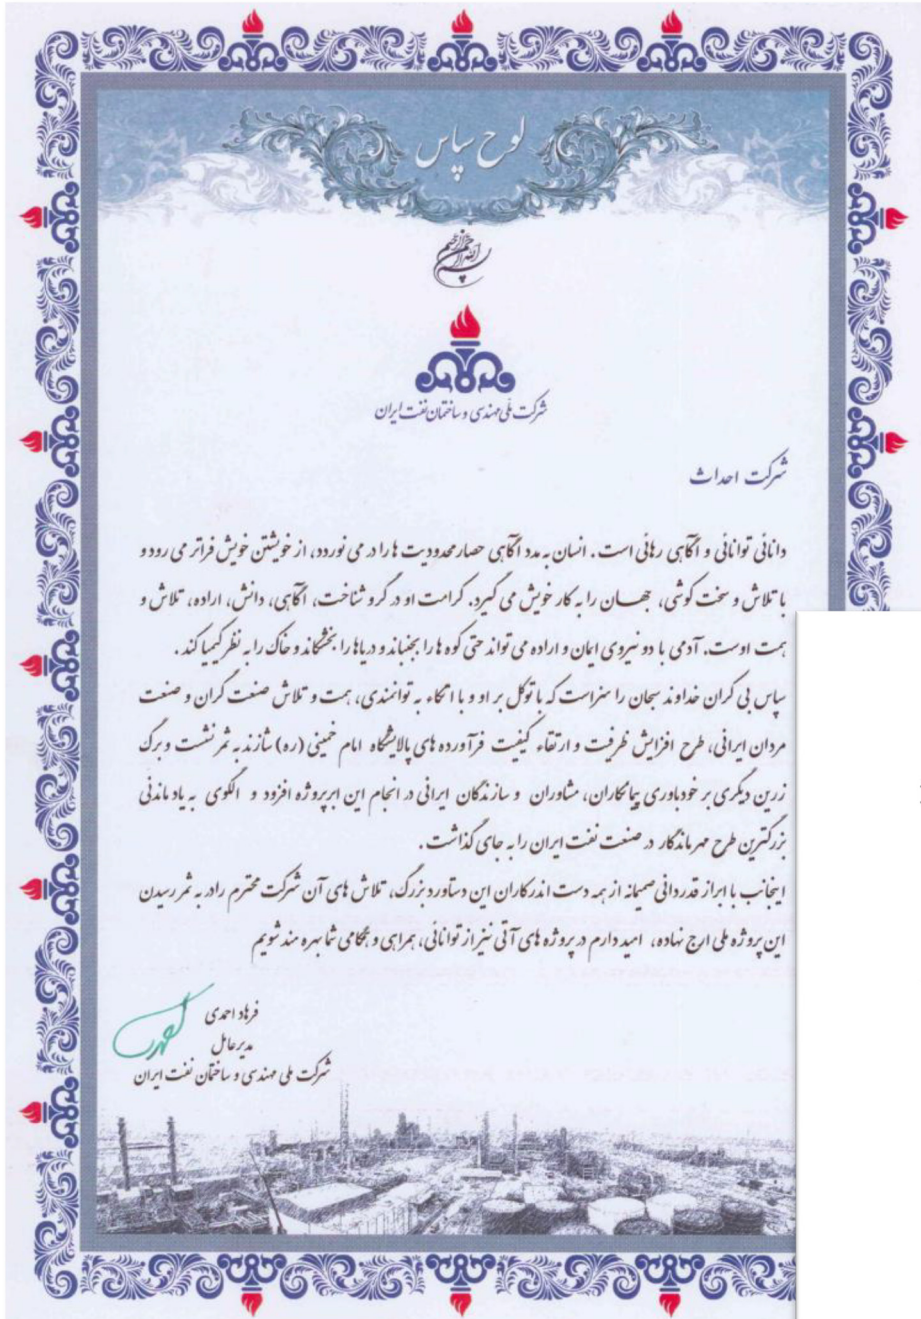 لوح سپاس
بسم الله الرحمن الرحیم
شرکت ملی مهندسی و ساختمان نفت ایران
شرکت احداث
دانائی توانائی و آگاهی رهائی است. انسان به مدد آگاهی حصار محدودیت ها را در می نوردد، از خویشتن خویش فراتر می رود و
با تلاش و سخت کوشی، جهان را به کار خویش می گیرد. کرامت او در گرو شناخت، آگاهی، دانش، اراده، تلاش و
همت اوست. آدمی با دو نیروی ایمان و اراده می تواند حتی کوه ها را بجنباند و دریاها را بخشکاند و خاک را به نظر کیمیا کند.
سپاس بی کران خداوند سبحان را سزاست که با توکل بر او و با اتکاء به توانمندی، همت و تلاش صنعت گران و صنعت
مردان ایرانی، طرح افزایش ظرفیت و ارتقاء کیفیت فرآورده های پالایشگاه امام خمینی (ره) شازند به ثمر نشست و برگ
زرین دیگری بر خودباوری پیمانکاران، مشاوران و سازندگان ایرانی در انجام این ابرپروژه افزود و الگوی به یاد ماندنی
بزرگترین طرح مهر ماندگار در صنعت نفت ایران را به جای گذاشت.
اینجانب با ابراز قدردانی صمیمانه از همه دست اندرکاران این دستاورد بزرگ، تلاش های آن شرکت محترم را در به ثمر رسیدن
این پروژه ملی ارج نهاده، امید دارم در پروژه های آتی نیز از توانائی، همراهی و همگامی شما بهره مند شویم
فرهاد احمدی
مدیر عامل
شرکت ملی مهندسی و ساختمان نفت ایران